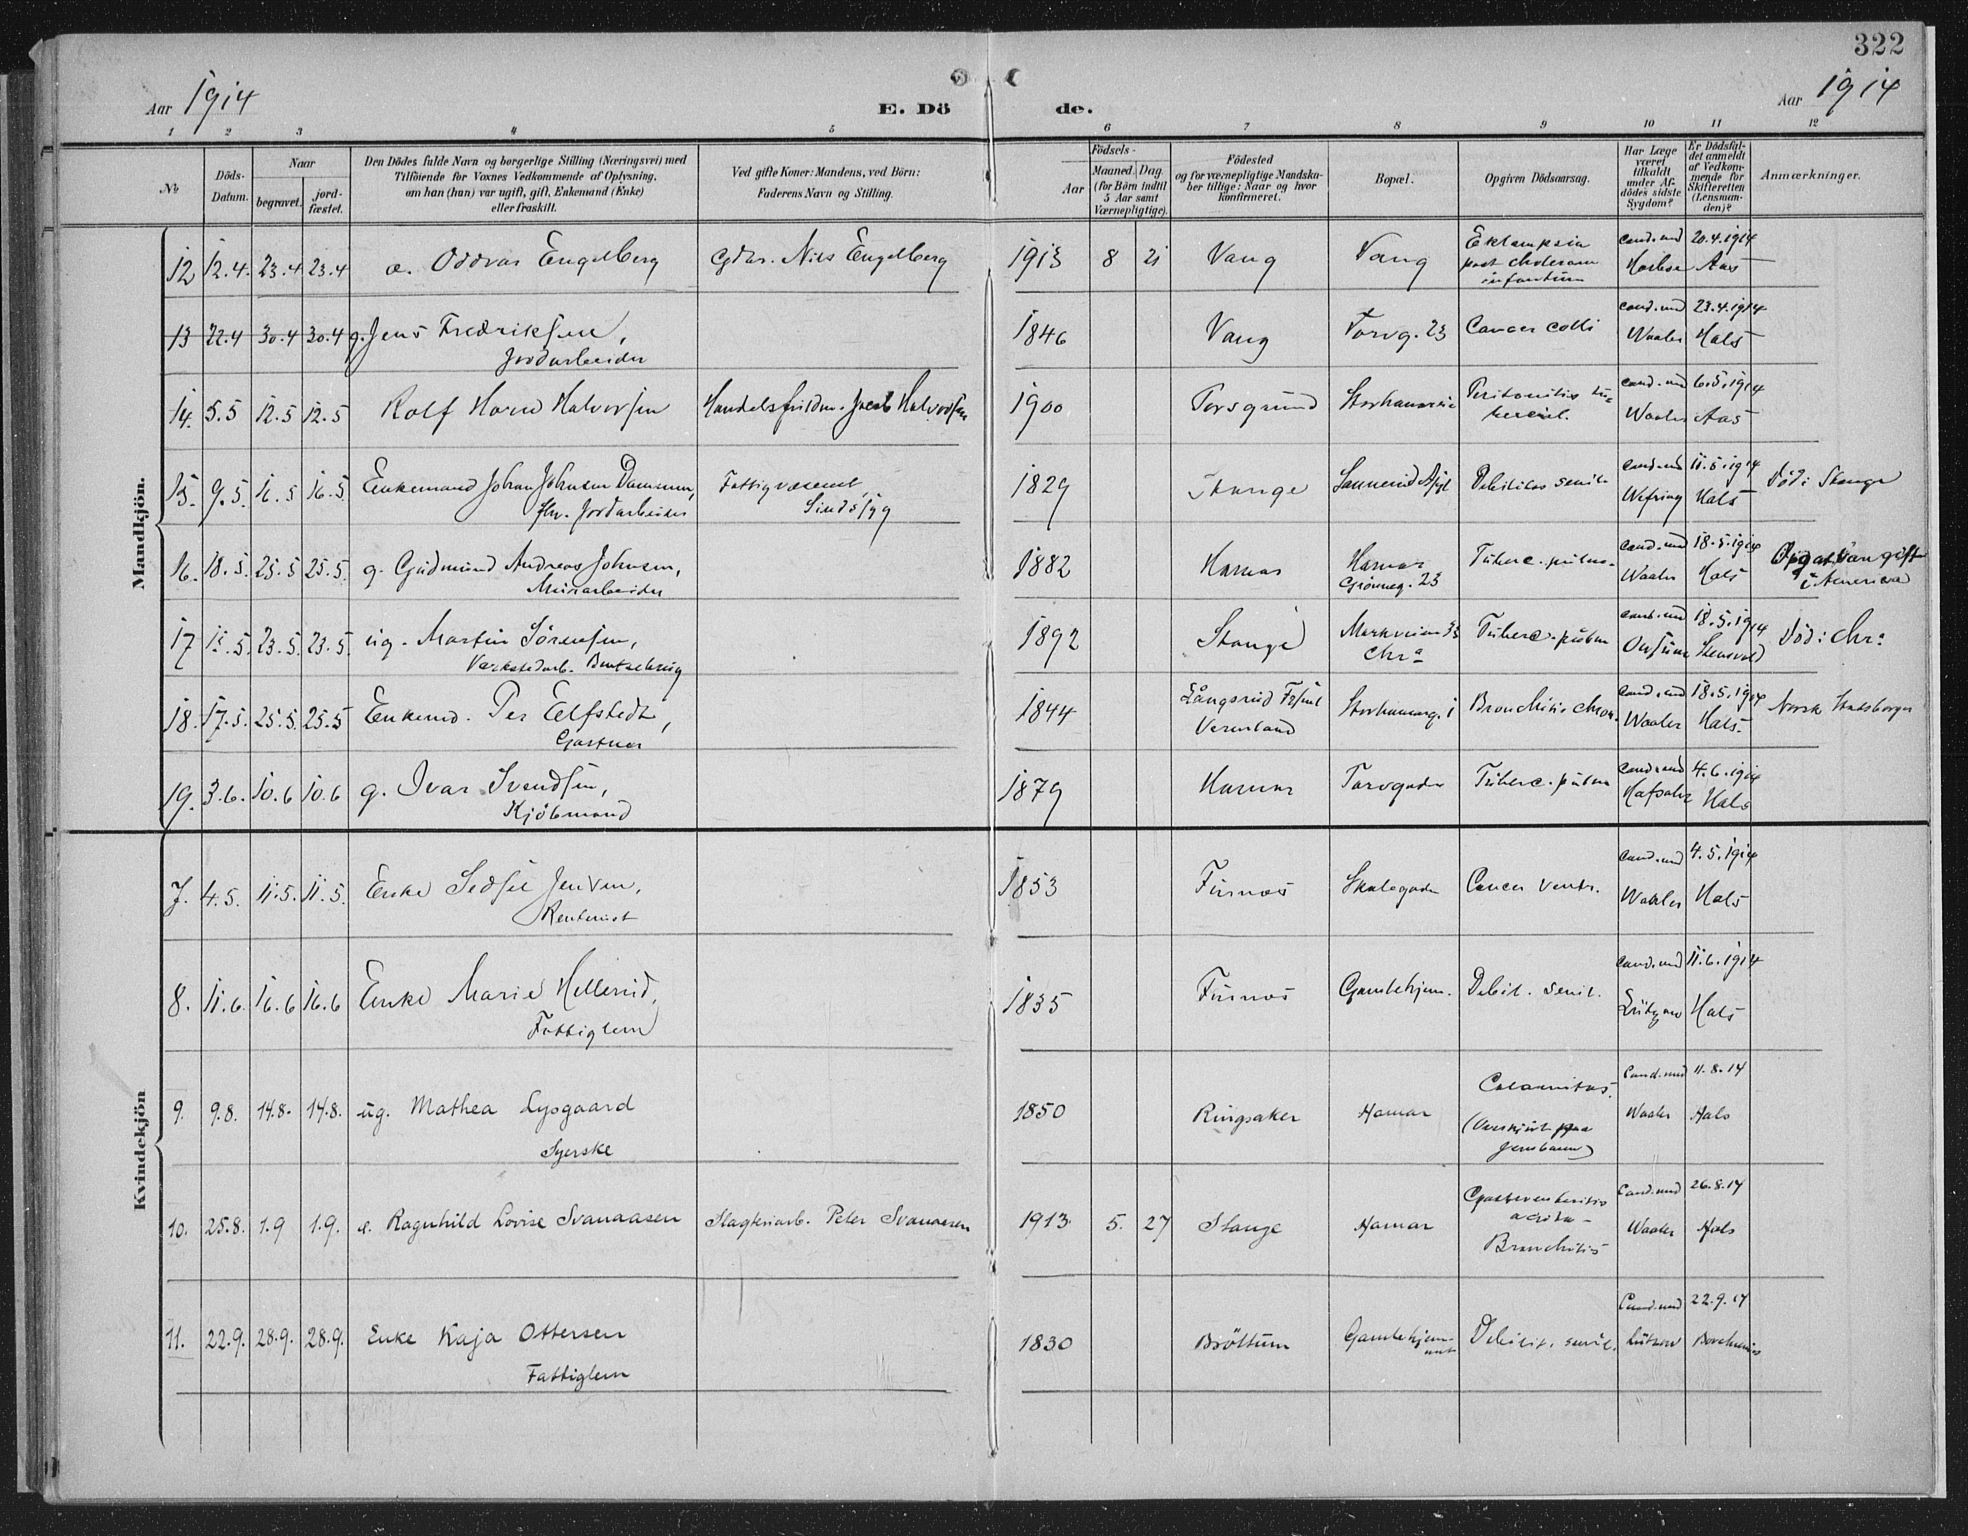 322
Aar 1914
E. Döde.
Aar 1914
1 2 3 4 5 6 7 8 9 10 11 12
No
Döds-Datum.
Naar
begravet.
jord-fæstet.
Den Dödes fulde Navn og borgerlige Stilling (Næringsvei) med
Tilföiende for Voxnes Vedkommende af Oplysning,
om han (hun) var ugift, gift, Enkemand (Enke)
eller fraskilt.
Ved gifte Koner: Mandens, ved Börn:
Faderens Navn og Stilling.
Födsels-
Aar
Maaned. Dag.
(for Börn indtil
5 Aar samt
Værnepligtige).
Födested
og for værnepligtige Mandska-
ber tillige: Naar og hvor
konfirmeret.
Bopæl.
Opgiven Dödsaarsag.
Har Læge
været
tilkaldt
under Af-
dödes sidste
Sygdom?
Er Dödsfal-
det anmeldt
af Vedkom-
mende for
Skifteretten
(Lensman-
den)?
Anmærkninger.
Mandkjön.
12 12.4. 23.4 23.4 Oddvar Engelberg Gdbr. Nils Engelberg 1913 8 21 Vang Vang Eklampsia post choleram infantum cand. med 20.4.1914 Aas
13 22.4 30.4 30.4 g. Jens Fredriksen, Jordarbeider 1846 Vang Torvg. 23 Cancer colli cand. med Waaler 23.4.1914 Hals
14. 5.5 12.5 12.5 Rolf Horn Halvorsen Handelsfuldm. Jacob Halvorsen 1900 Porsgrund Storhamarveie Peritonitis tubercul. cand. med Waaler 6.5.1914 Aas
15. 9.5. 16.5 16.5 Enkemand Johan Johnsen Dammen, fhv. Jordarbeider Fattigvæsenet, Sindssyg 1829 Stange Sannerud Asyl Debilitas senil. cand. med Wefring 11.5.1914 Hals Död i Stange
16. 18.5. 25.5 25.5. g. Gudmund Andreas Johnsen, Murarbeider 1882 Hamar Hamar Grönneg. 23 Tuberc. pulm. cand. med Waaler 18.5.1914 Hals i Amerika
17 15.5. 23.5. 23.5. ug. Martin Sörensen, Værkstedarb. 1892 Stange Markveien 33 Chr.a Tuberc. pulm cand. med 18.5.1914 Stensvold Död i Chr.a
18. 17.5. 25.5. 25.5 Enkemd. Per Elfstedt, Gartner 1844 Vermland Storhamarg. 1 Bronchitis chron. cand. med Waaler 18.5.1914 Hals. Norsk Statsborger
19. 3.6. 10.6 10.6 g. Ivar Svendsen, Kjöbmand 1879 Hamar Torvgaden Tuberc. pulm cand. med 4.6.1914 Hals
Kvindekjön
7. 4.5. 11.5. 11.5. Enke Sedsel Jensen, Rentenist 1853 Furnes Skolegaden Cancer ventr. cand. med Waaler 4.5.1914 Hals
8. 11.6. 16.6 16.6 Enke Marie Hellerud, Fattiglem 1835 Furnes Gamlehjem. Debil. senil. cand. med Lützow 11.6.1914 Hals
9. 9.8. 14.8. 14.8. ug. Mathea Lysgaard Syerske 1850 Ringsaker Hamar Calamitas. (Overkjört paa Jernbanen) Cand. med Waaler 11.8.14 Hals
10. 25.8. 1.9 1.9. e. Ragnhild Lovise Svanaasen Slagteriarb. Peter Svanaasen 1913 5. 27 Stange Hamar Gastroenteritis acuta – Bronchitis Cand. med Waaler 26.8.14 Hals
11. 22.9. 28.9. 28.9. Enke Kaja Ottersen Fattiglem 1830 Bröttum Gamlehjemmet Debilit. senil. Cand. med Lützow 22.9.14